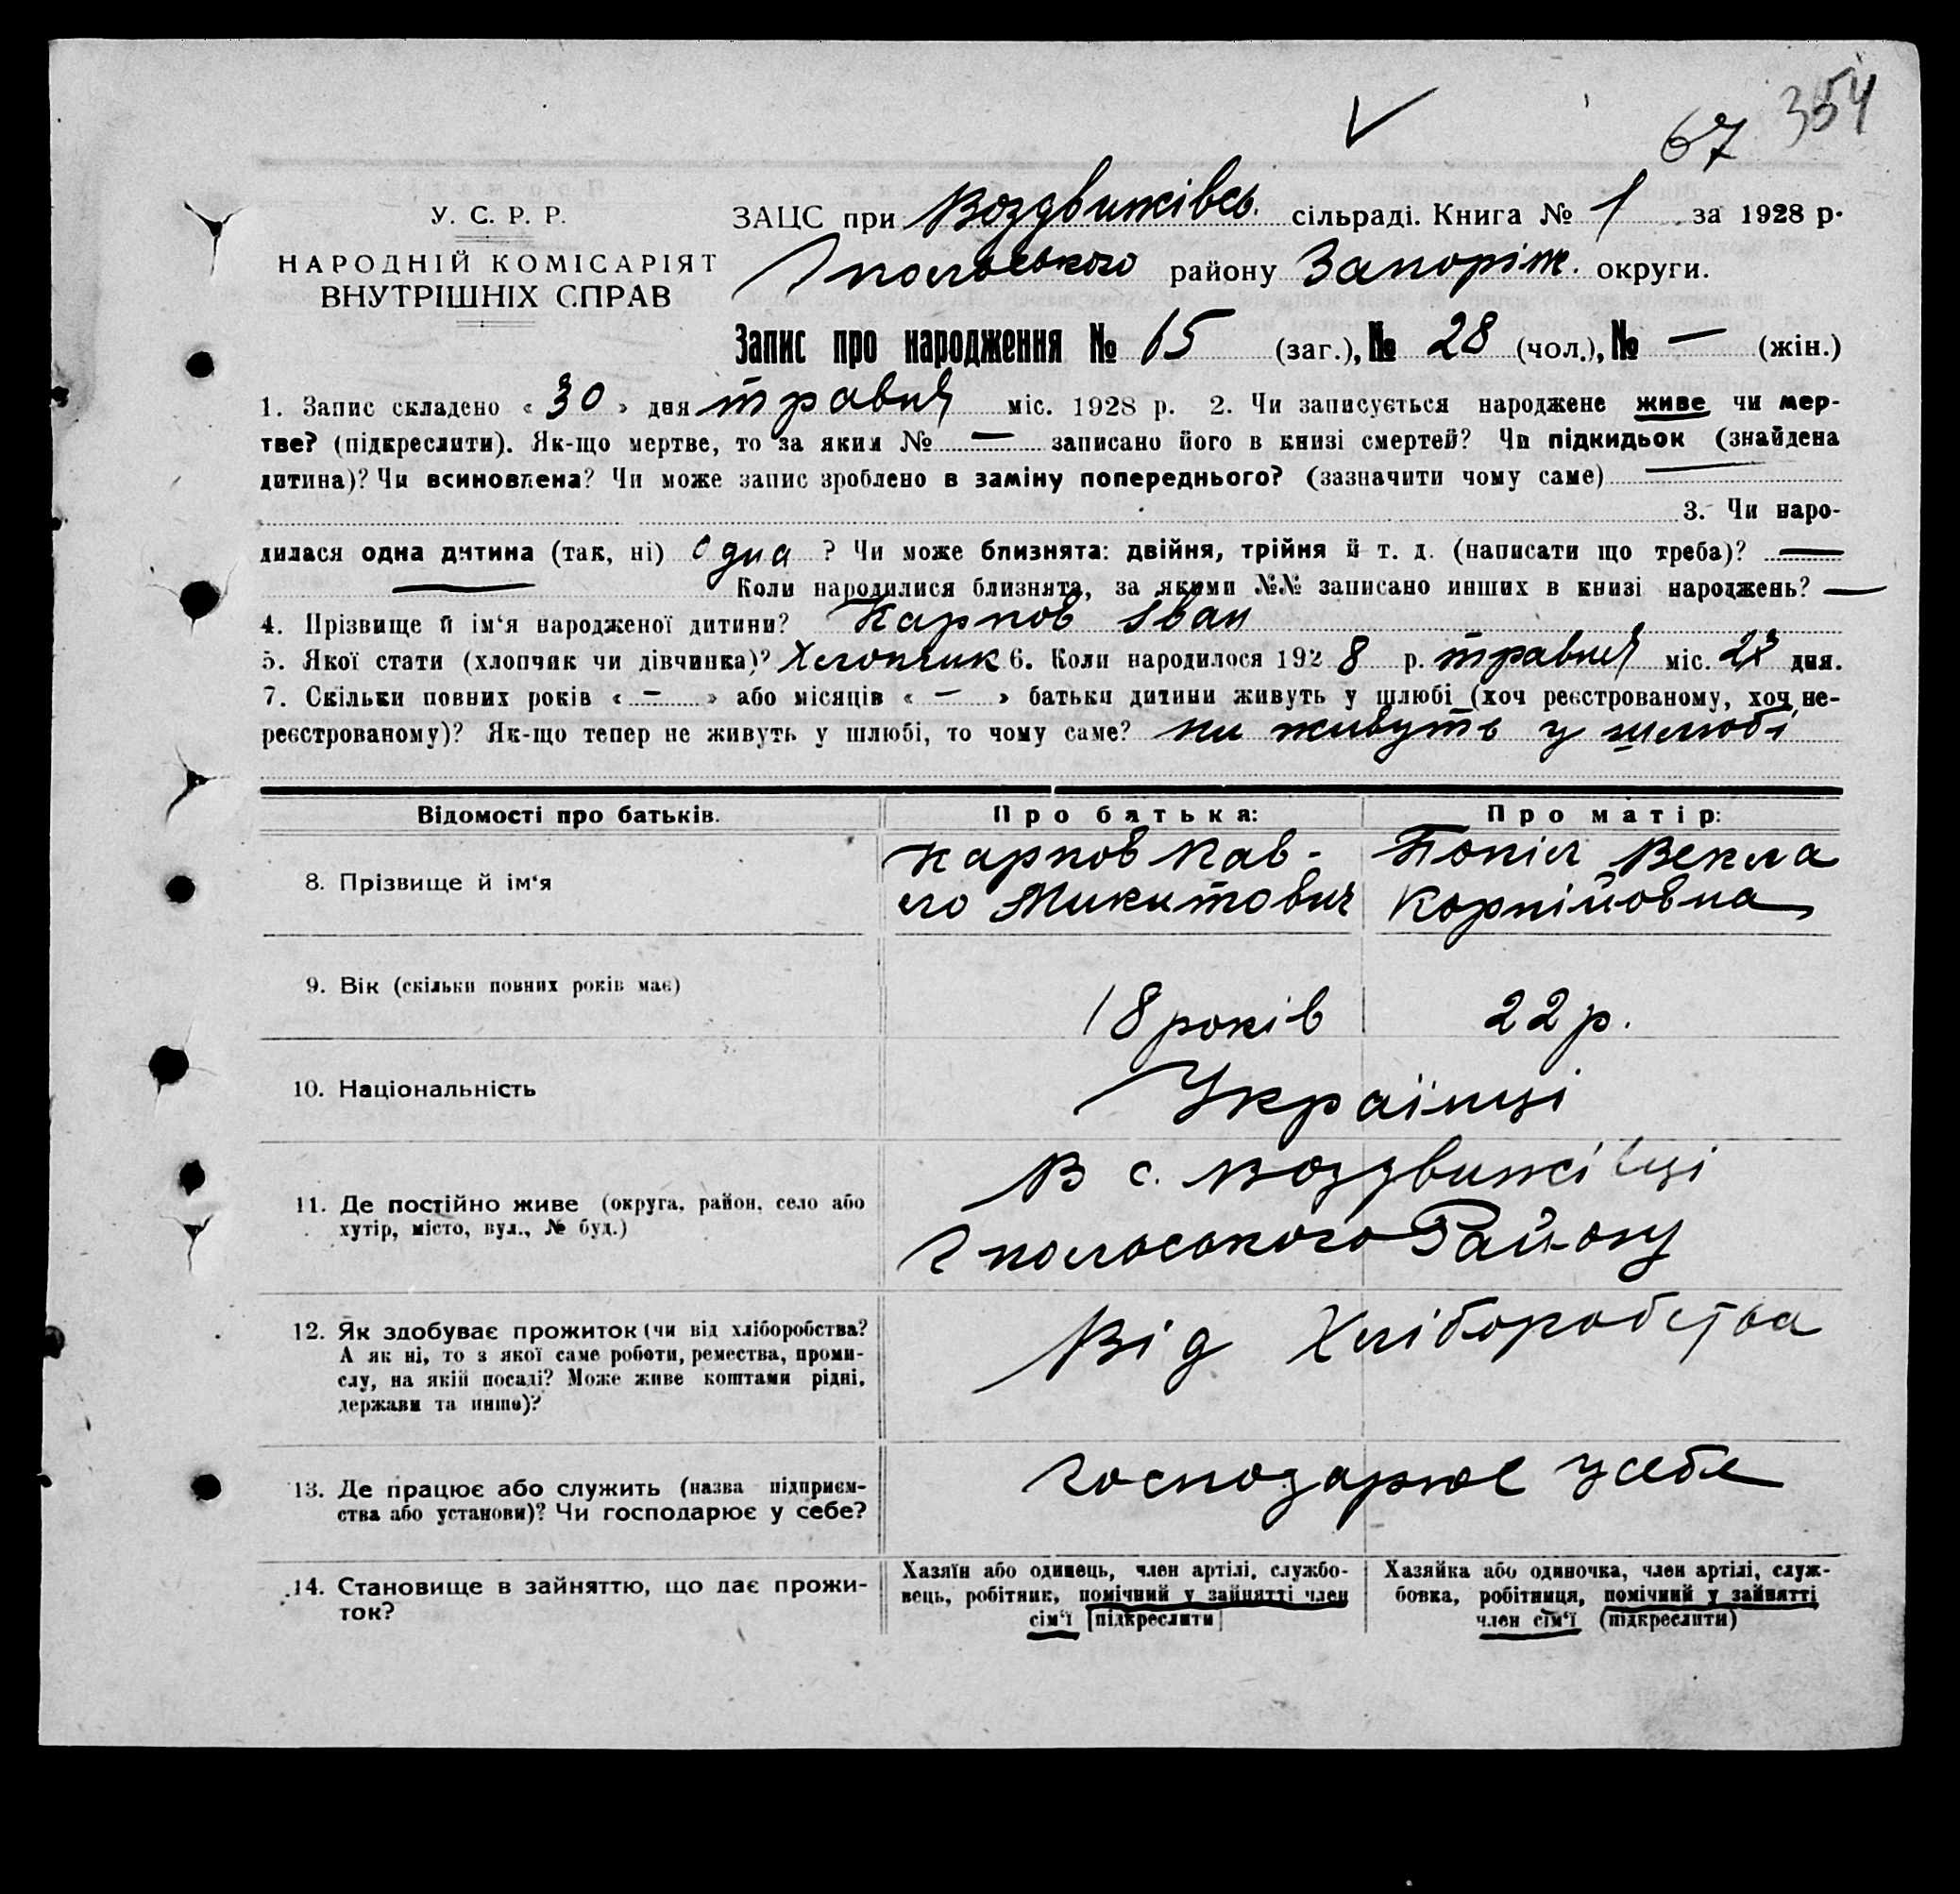 354
67
У. С. Р. Р.
НАРОДНІЙ КОМІСАРІЯТ
ВНУТРІШНІХ СПРАВ
ЗАЦС при Воздвижівсь. сільраді. Книга № 1 за 1928 р.
Гпольського району Запоріж. округи.
Запис про народження № 65 (заг.), № 28 (чол.), № — (жін.)
1. Запис складено « 30 » дня травня міс. 1928 р. 2. Чи записується народжене живе чи мер-
тве? (підкреслити). Як-що мертве, то за яким № — записано його в книзі смертей? Чи підкидьок (знайдена
дитина)? Чи всиновлена? Чи може запис зроблено в заміну попереднього? (зазначити чому саме) —
3. Чи наро-
дилася одна дитина (так, ні) одна ? Чи може близнята: двійня, трійня й т. д. (написати що треба)? —
— Коли народилися близнята, за якими №№ записано инших в книзі народжень? —
4. Прізвище й ім‘я народженої дитини? Карпов Іван
5. Якої стати (хлопчик чи дівчинка)? Хлопчик 6. Коли народилося 1928 р. травня міс. дня.
7. Скільки повних років « — » або місяців « — » батьки дитини живуть у шлюбі (хоч реєстрованому, хоч не-
реєстрованому)? Як-що тепер не живуть у шлюбі, то чому саме? ни живуть у шлюбі
Відомості про батьків. Про батька: Про матір:
8. Прізвище й ім‘я
Карпов Пав-
ло Микитович
Попіл Векла
Корнійовна
9. Вік (скільки повних років має) 18 років 22 р.
10. Національність Українці
11. Де постійно живе (округа, район, село або
хутір, місто, вул., № буд.)
В с. Воздвижівці
Гпольського Району
12. Як здобуває прожиток (чи від хліборобства?
А як ні, то з якої саме роботи, ремества, проми-
слу, на якій посаді? Може живе коштами рідні,
держави та инше)?
Від Хліборобства
13. Де працює або служить (назва підприєм-
ства або установи)? Чи господарює у себе?
господарює у себе
14. Становище в зайняттю, що дає прожи-
ток?
Хазяїн або одинець, член артілі, службо-
вець, робітник, помічний у зайнятті член
сім‘ї [підкреслити]
Хазяйка або одиночка, член артілі, служ-
бовка, робітниця, помічний у зайнятті
член сім‘ї (підкреслити)